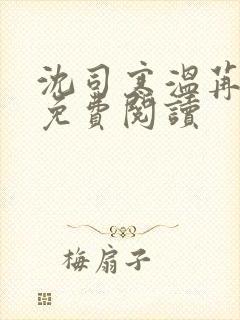 沈司寒溫苒
免費閱讀
梅扇子